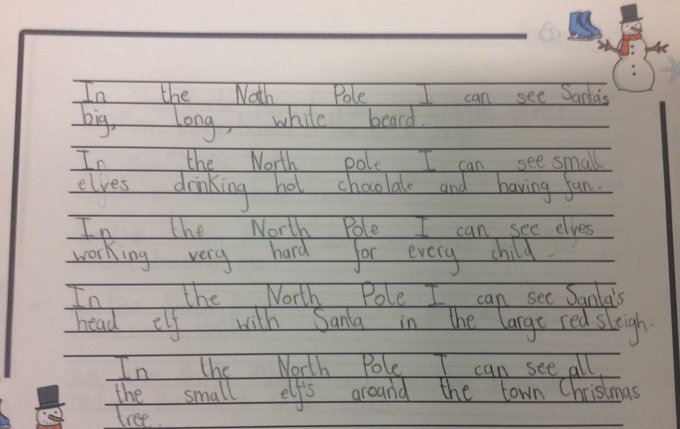 In the Noth Pole I can see Santa's
big, long, white beard.
In the North pole I can see small
elves drinking hot chocolate and having fun.
In the North Pole I can see elves
working very hard for every child.
In the North Pole I can see Santa's
head elf with Santa in the large red sleigh.
In the North Pole I can see all
the small elf's around the town Christmas
tree.